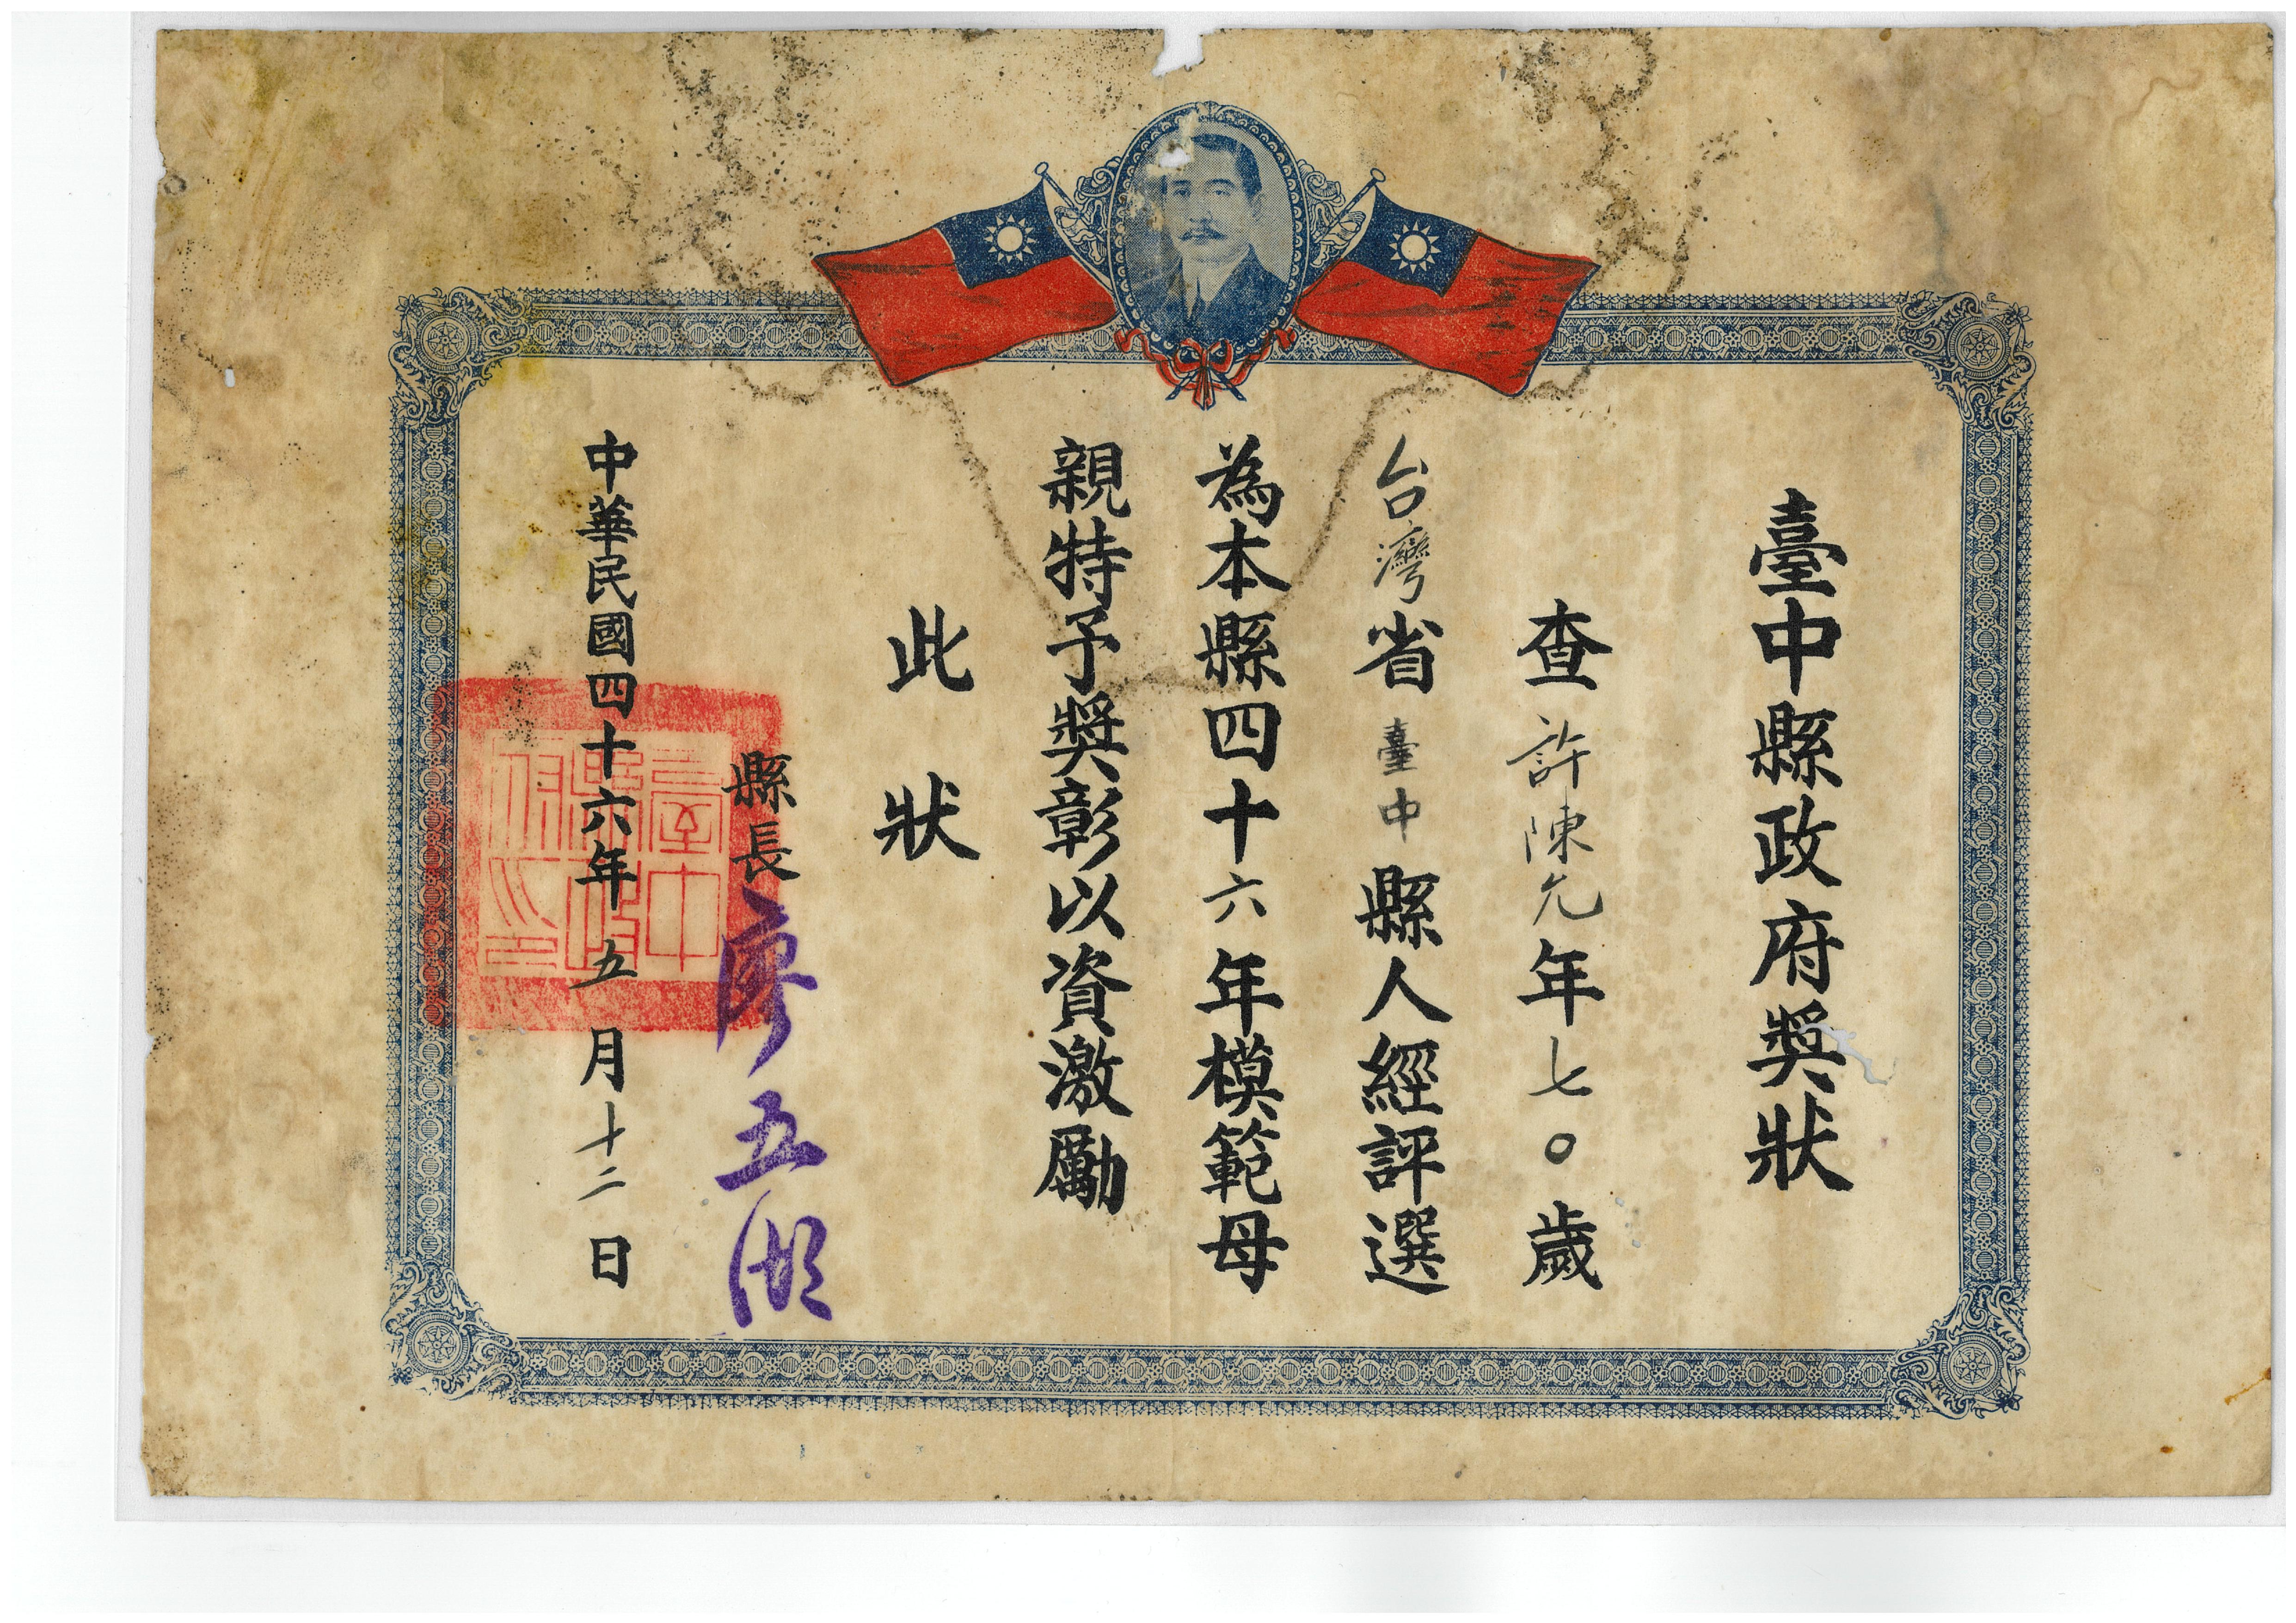 臺中縣政府獎狀
查許陳允年七〇歲
台灣省臺中縣人經評選
為本縣四十六年模範母
親特予獎彰以資激勵
此狀
縣長廖五湖
中華民國四十六年五月十二日
臺中縣政府之印